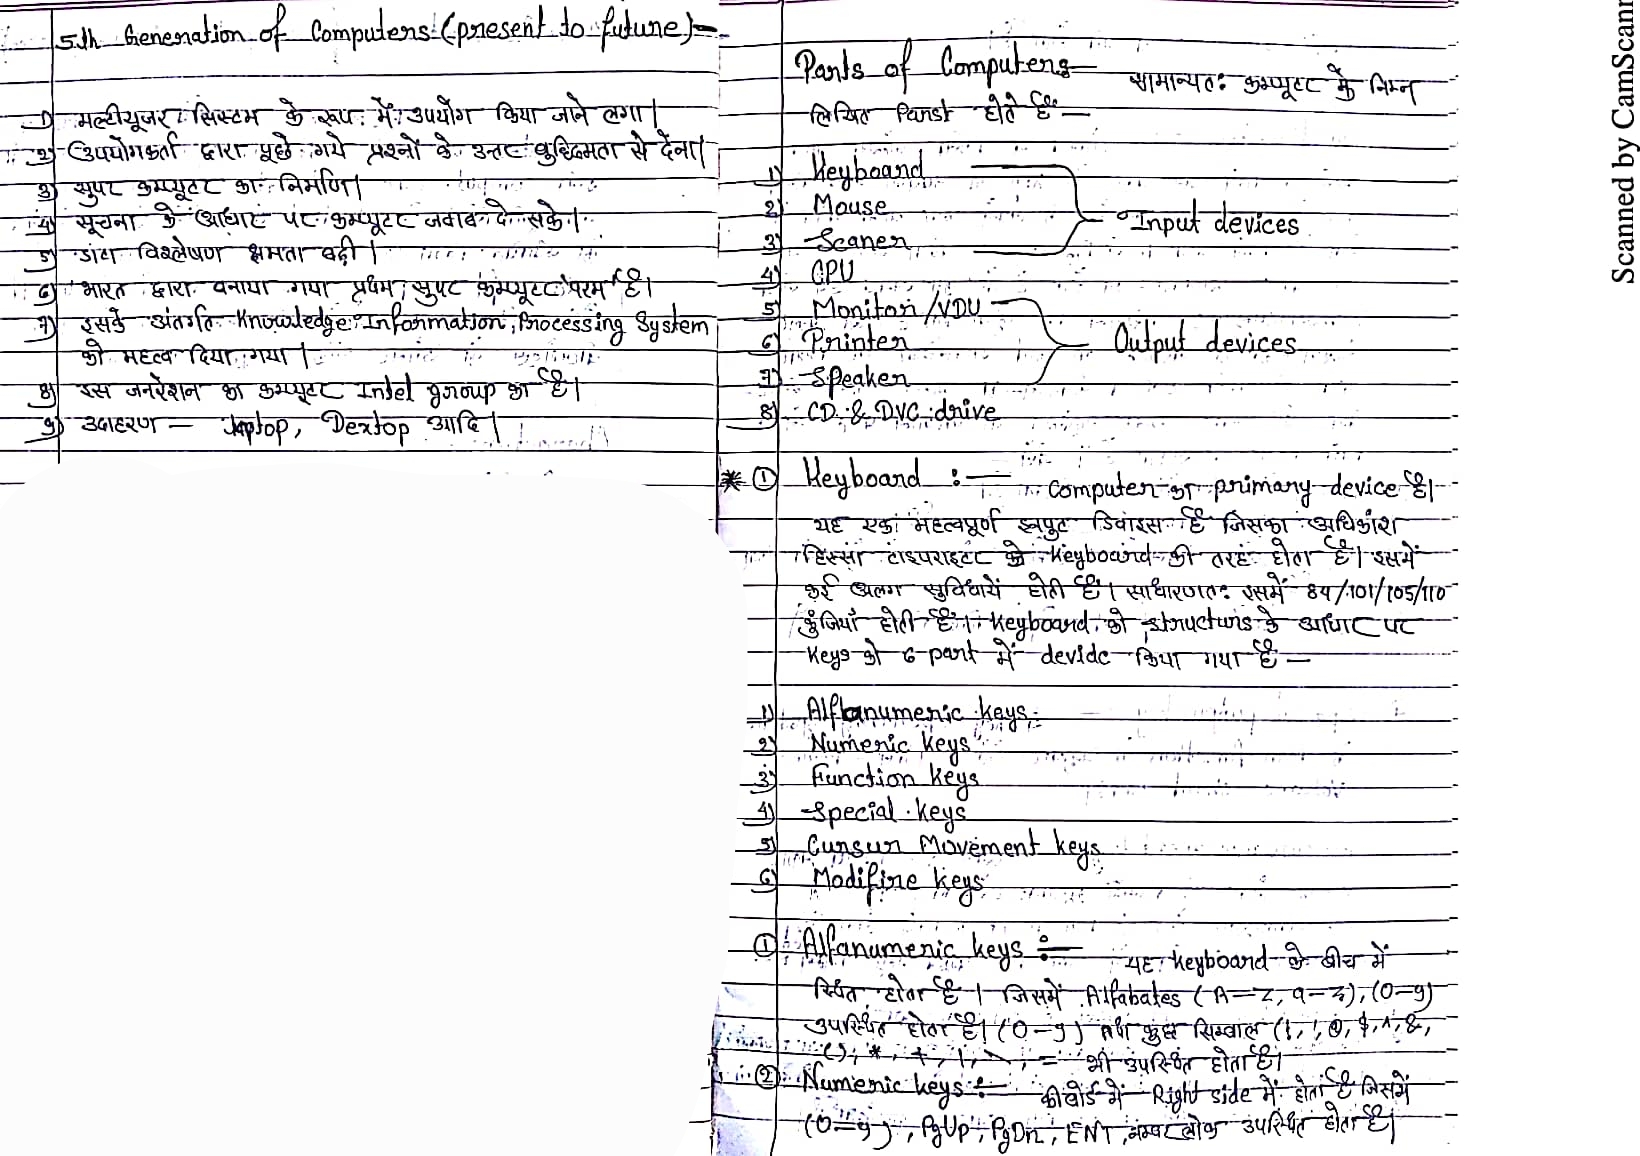 5th Generation of Computers (present to future) –
1) मल्टीयूजर सिस्टम के रूप में उपयोग किया जाने लगा।
2) उपयोगकर्ता द्वारा पूछे गये प्रश्नों के उत्तर बुध्दिमता से देना।
3) सुपर कम्प्यूटर का निर्माण।
4) सूचना के आधार पर कम्प्यूटर जवाब दे सके।
5) डाटा विश्लेषण क्षमता बढ़ी।
6) भारत द्वारा बनाया गया प्रथम सुपर कम्प्यूटर परम है।
7) इसके अंतर्गत Knowledge Information Processing System
को महत्व दिया गया।
8) इस जनरेशन का कम्प्यूटर Intel group का है।
9) उदाहरण — laptop, Dextop आदि।
Parts of Computers — सामान्यतः कम्प्यूटर के निम्न
लिखित Parst होते है –
1) Keyboard
2) Mouse
3) Scaner
Input devices
4) CPU
5) Monitor/VDU
6) Printer
7) Speaker
Output devices
8) CD & DVC drive
* ① Keyboard :— Computer का primary device है।
यह एक महत्वपूर्ण इनपुट डिवाइस है जिसका अधिकांश
हिस्सा टाइपराइटर के Keyboard की तरह होता है। इसमें
कई अलग सुविधायें होती है। साधारणतः इसमें 84/101/105/110
कुंजियाँ होती है। Keyboard को structurs के आधार पर
Keys को 6 part में devide किया गया है —
1) Alfanumeric keys
2) Numeric keys
3) Function keys
4) Special keys
5) Cursur Movement keys
6) Modifire keys
① Alfanumeric keys :— यह keyboard के बीच में
स्थित होता है। जिसमें Alfabates (A–Z, a–z), (0–9)
उपस्थित होता है। (0–9) तथा कुछ सिम्बाल (!, @, $, ^, &,
(), *, +, = भी उपस्थित होता है।
② Numeric keys :– कीबोर्ड में Right side में होता है जिसमें
(0–9), PgUp, PgDn, ENT, नम्बर लॉक उपस्थित होता है।
Scanned by CamScann